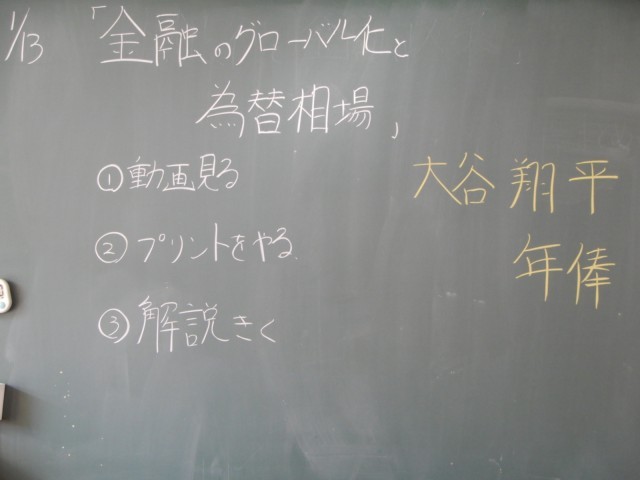 1/13 「金融のグローバル化と
為替相場」
①動画見る
②プリントをやる.
③解説きく
大谷翔平
年俸